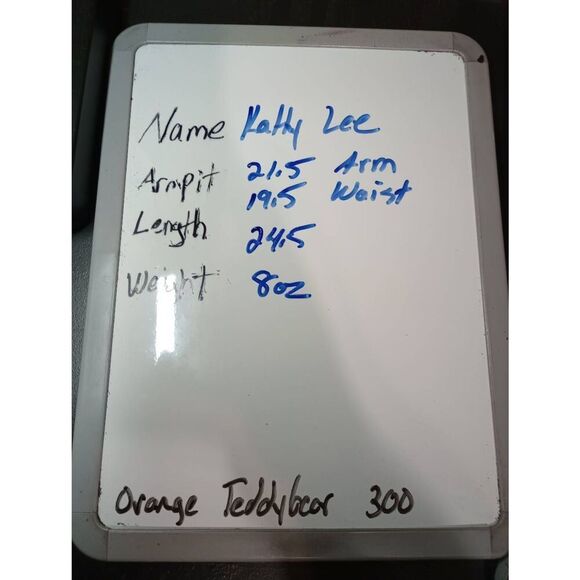 Name Kathy Lee
Armpit 21.5 Arm
19.5 Waist
Length 24.5
Weight 8oz
Orange Teddybear 300